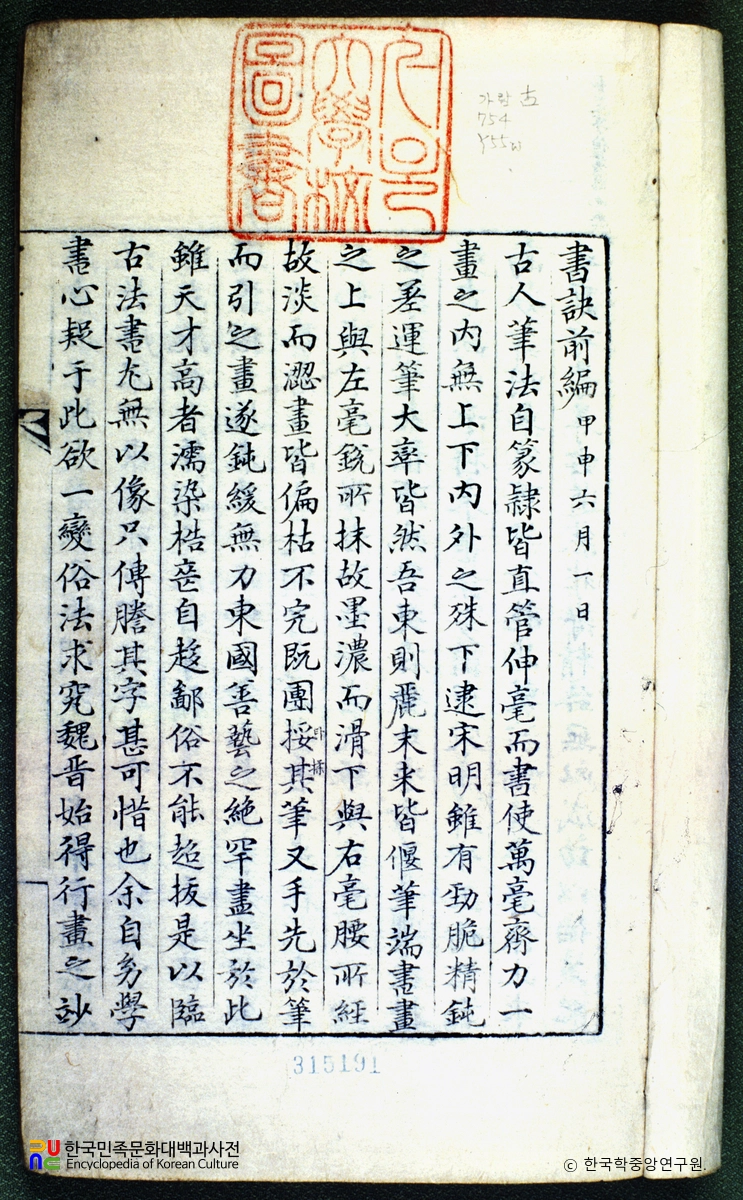 서울
大學校
圖書
가람 古
754
Y55w
書訣前編 甲申六月一日
古人筆法自篆隷皆直管伸毫而書使萬毫齊力一
畫之內無上下內外之殊下逮宋明雖有勁脆精鈍
之差運筆大率皆然吾東則麗末來皆偃筆端書畫
之上與左毫銳所抹故墨濃而滑下與右毫腰所經
故淡而澀畫皆偏枯不完旣團挼其筆又手先於筆
而引之畫遂鈍緩無力東國善藝之絶罕盡坐於此
雖天才高者濡染梏喪自趍鄙俗不能超拔是以臨
古法書尤無以像只傳謄其字甚可惜也余自㓜學
書心疑于此欲一變俗法求究魏晋始得行畫之玅
315191
한국민족문화대백과사전
Encyclopedia of Korean Culture
© 한국학중앙연구원.